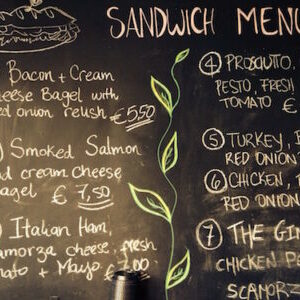 SANDWICH MENU
Bacon + Cream
Cheese Bagel with
red onion relish €5,50
Smoked Salmon
and cream cheese
Bagel € 7,50
Italian Ham,
scamorza cheese, fresh
tomato + Mayo €7,00
④ PROSCIUTTO,
PESTO, FRESH
TOMATO €
⑤ TURKEY,
RED ONION
⑥ CHICKEN,
RED ONION
⑦ THE
CHICKEN
SCAMORZ